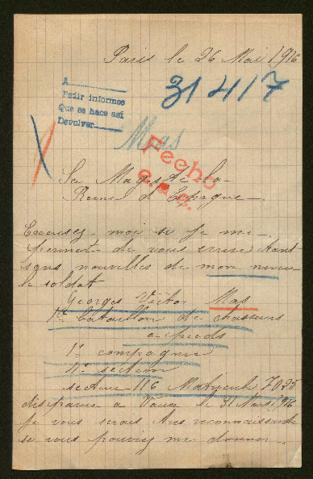 Paris le 26 Mai 1916
31417
A
Pedir informes
Que se hace así
Devolver
Mas
Fecho
Sa Majesté la
Reine d'Espagne
Excusez moi si je me
permet de vous
nouvelles de mon neveu
le soldat
Georges Victor Mas
1er bataillon de chasseurs
a pieds
1e compagnie
4e section
secteur 116 Matricule 7025
disparu a Vaux le 31 Mars 1916
je vous serais tres reconnaissante
si vous pouviez me donner